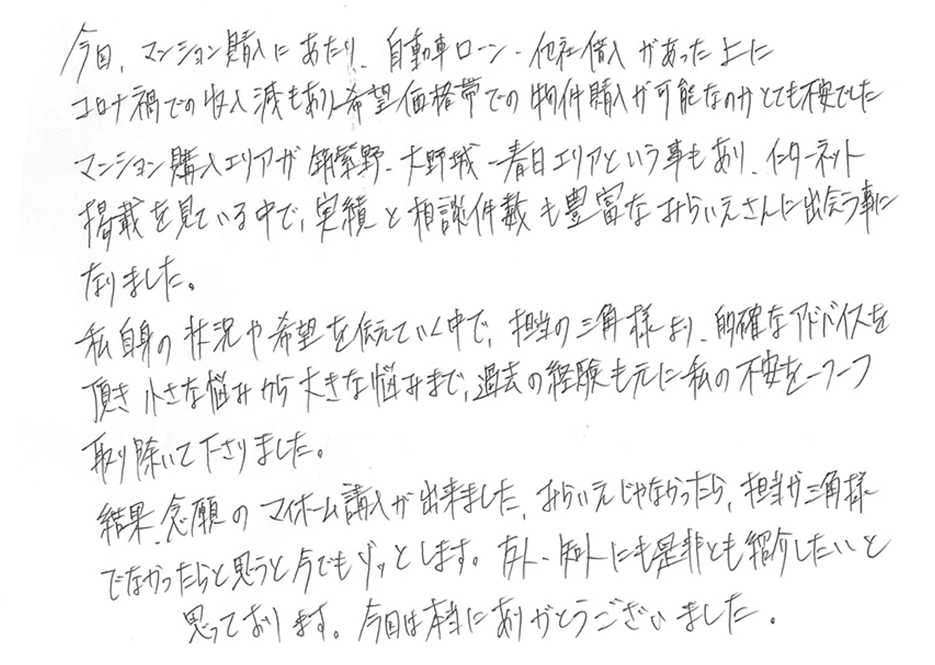 今回、マンション購入にあたり、自動車ローン・他社借入があった上に
コロナ禍での収入減もあり、希望価格帯での物件購入が可能なのかとても不安でした
マンション購入エリアが筑紫野・大野城・春日エリアという事もあり、インターネット
掲載を見ている中で、実績と相談件数も豊富なみらいえさんに出会う事に
なりました。
私自身の状況や希望を伝えていく中で、担当の三角様より、的確なアドバイスを
頂き小さな悩みから大きな悩みまで、過去の経験も元に私の不安を一つ一つ
取り除いて下さりました。
結果、念願のマイホーム購入が出来ました。みらいえじゃなかったら、担当が三角様
でなかったらと思うと今でもゾッとします。友人・知人にも是非とも紹介したいと
思っております。今回は本当にありがとうございました。